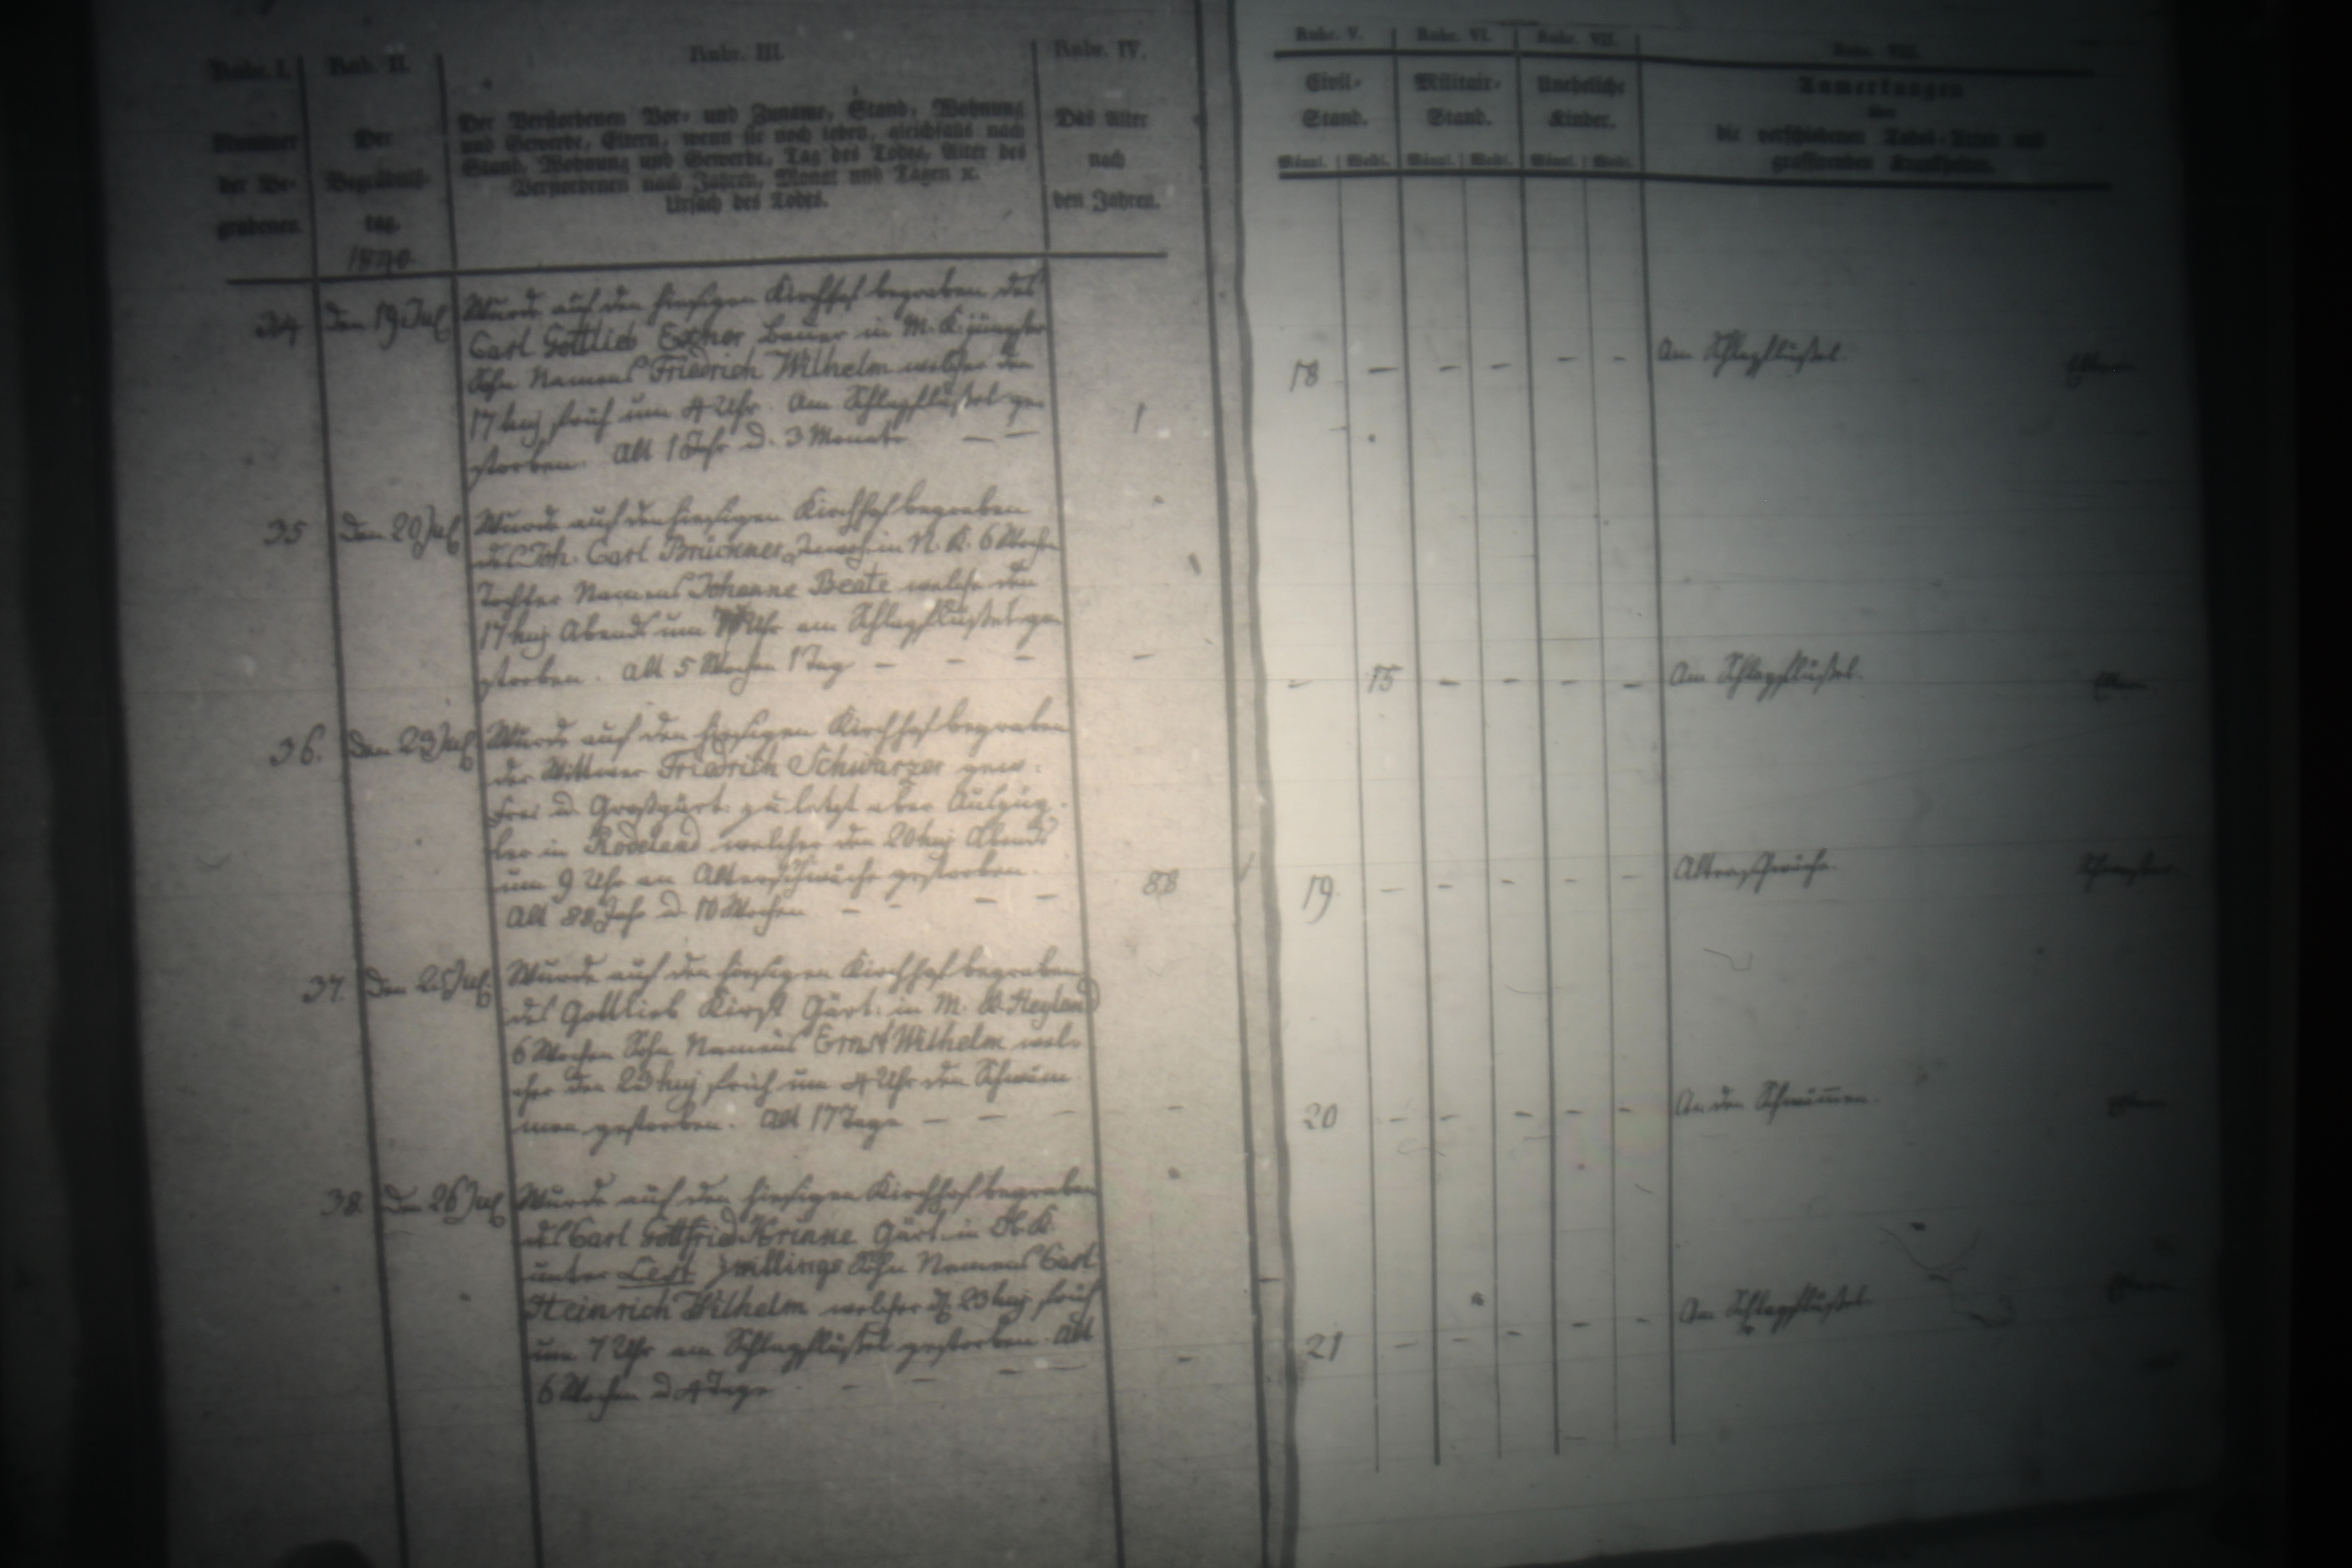 Rubr. I. Rub. II. Rubr. III. Rubr. IV.
Nummer der Begrabenen.
Der Begräbnißtag.
1840.
Der Verstorbenen Vor- und Zuname, Stand, Wohnung
und Gewerbe, Eltern, wenn sie noch leben, gleichfalls nach
Stand, Wohnung und Gewerbe, Tag des Todes, Alter des
Verstorbenen nach Jahren, Monat und Tagen ꝛc.
Ursach des Todes.
Das Alter
nach
den Jahren.
34 Den 19 Jul
Wurde auf den hiesigen Kirchhof begraben des
Carl Gottlieb Bauer in M. K. jüngster
Sohn Namens Friedrich Wilhelm welcher den
17 huj früh um 4 Uhr. Am Schlagflußel ge-
storben. Alt 1 Jahr u. 3 Monate — —
1
35 Den 20 Jul
Wurde auf den hiesigen Kirchhof begraben
des Joh. Carl Brückner, Inwoh. in N. K. 6 Wochen
Tochter Namens Johanne Beate welche den
17 huj Abends um Uhr am Schlagflußel ge-
storben. Alt 5 Wochen 1 Tag — — —
—
36. Den 23 Jul
Wurde auf den hiesigen Kirchhof begraben
der Wittwer Friedrich Schwarzer gew.
Frei u. Großgärt: zuletzt aber Auszüg-
ler in Rodeland welcher den 20 huj Abends
um 9 Uhr an Altersschwäche gestorben.
Alt 88 Jahr u. 10 Wochen — — — —
88
37. Den 25 Jul.
Wurde auf den hiesigen Kirchhof begraben
des Gottlieb Kirst Gärt: in M. K.
6 Wochen Sohn Namens Ernst Wilhelm wel-
cher den 23 huj früh um 4 Uhr den Schwäm-
men gestorben. Alt 17 Tage — — —
—
38. Den 26 Jul
Wurde auf den hiesigen Kirchhof begraben
des Carl Gottfried Gärt: in K.
unter Zwillings Sohn Namens Carl
Heinrich Wilhelm welcher d. 23 huj früh
um 7 Uhr am Schlagflüßel gestorben. Alt
6 Wochen u 4 Tage — — — —
—
Rubr. V. Rubr. VI. Rubr. VII. Rubr. VIII.
Civil-Stand. Militair-Stand. Uneheliche Kinder.
Anmerkungen
über
die verschiedenen Todes-Arten und
grassirenden Krankheiten.
Männl. Weibl. Männl. Weibl. Männl. Weibl.
18 — — — — — Am Schlagflußel.
— 15 — — — — Am Schlagflußel.
19 — — — — — Altersschwäche.
20 — — — — — An den Schwämmen.
21 — — — — — Am Schlagflußel.